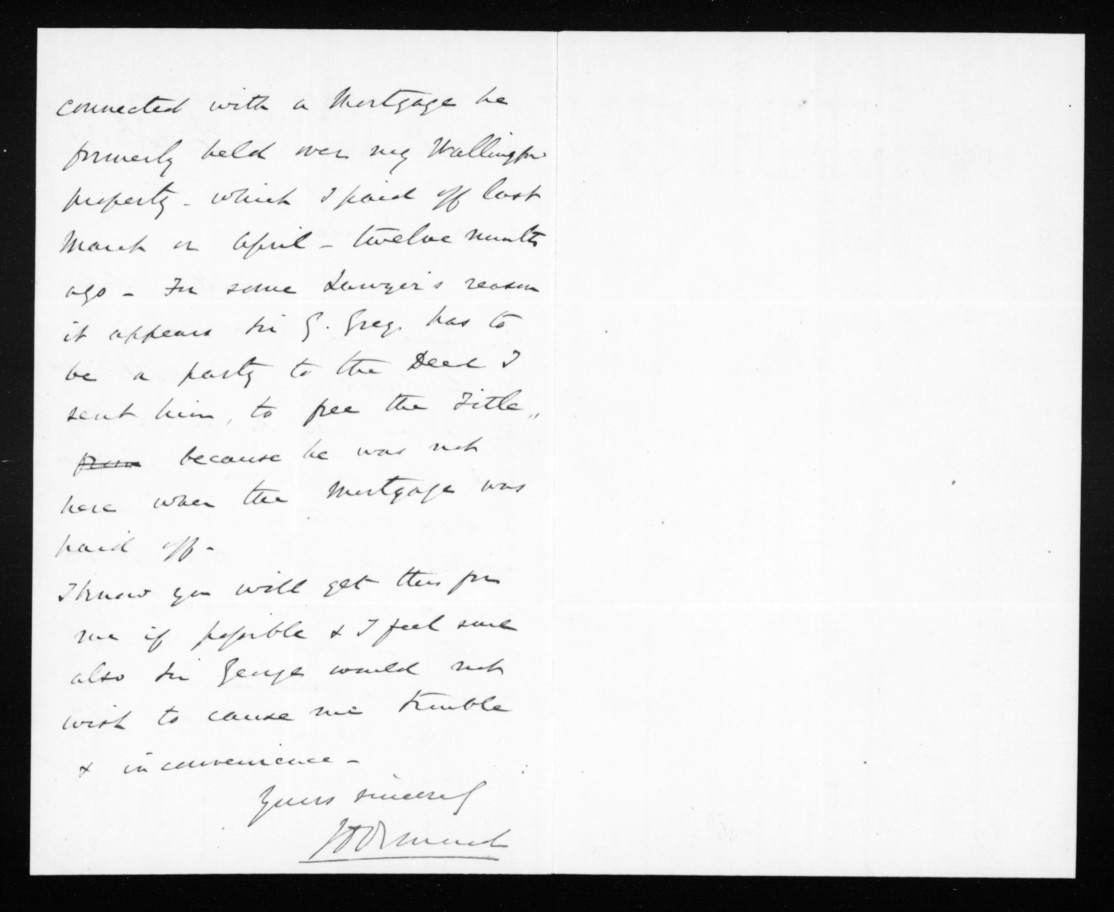 connected with a Mortgage he
formerly held over my Wallingford
property - which I paid off last
March or April - twelve months
ago - For some Lawyer's reason
it appears Sir G. Grey has to
be a party to the Deed I
sent him, to free the Title,
because he was not
here when the Mortgage was
paid off -
I know you will get this for
me if possible & I feel sure
also Sir George would not
wish to cause me trouble
& inconvenience -
Yours sincerely
J D Ormond